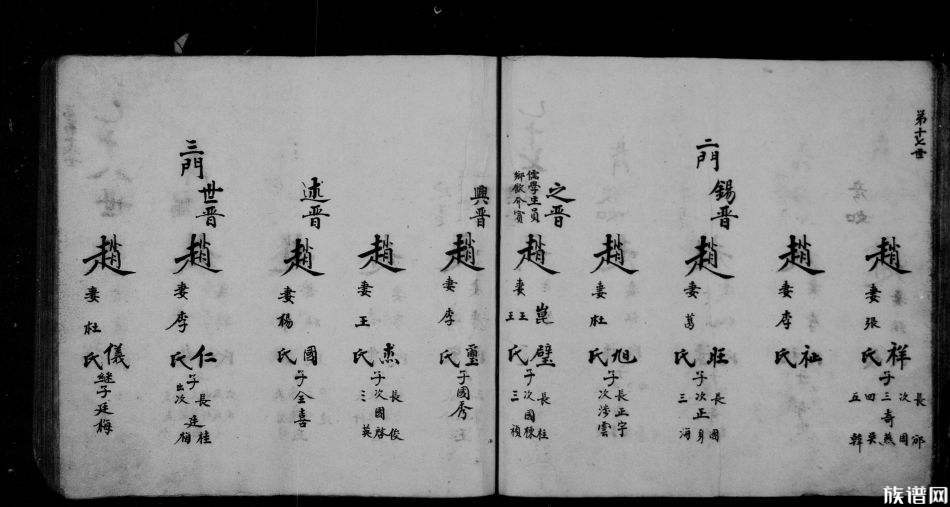 第十七世
趙祥
妻張氏
子
長
次國
三奇燕
四吳
五韓
趙祉
妻李氏
二門
錫晋
趙旺
妻葛氏
子
長國
次正身
三海
趙旭
妻杜氏
子
長正宇
次涉雲
之晋
儒學生員
鄉飲介賓
趙璧
妻崑氏
王王
子
長柱
次國棟
三禎
興晋
趙璽
妻李氏
子國秀
趙
妻王氏
子
長俊
次國啓
三英
述晋
趙國
妻楊氏
子金喜
三門
世晋
趙仁
妻李氏
子
長廷桂
次梅
出
趙儀
妻杜氏
継子廷梅
族谱网